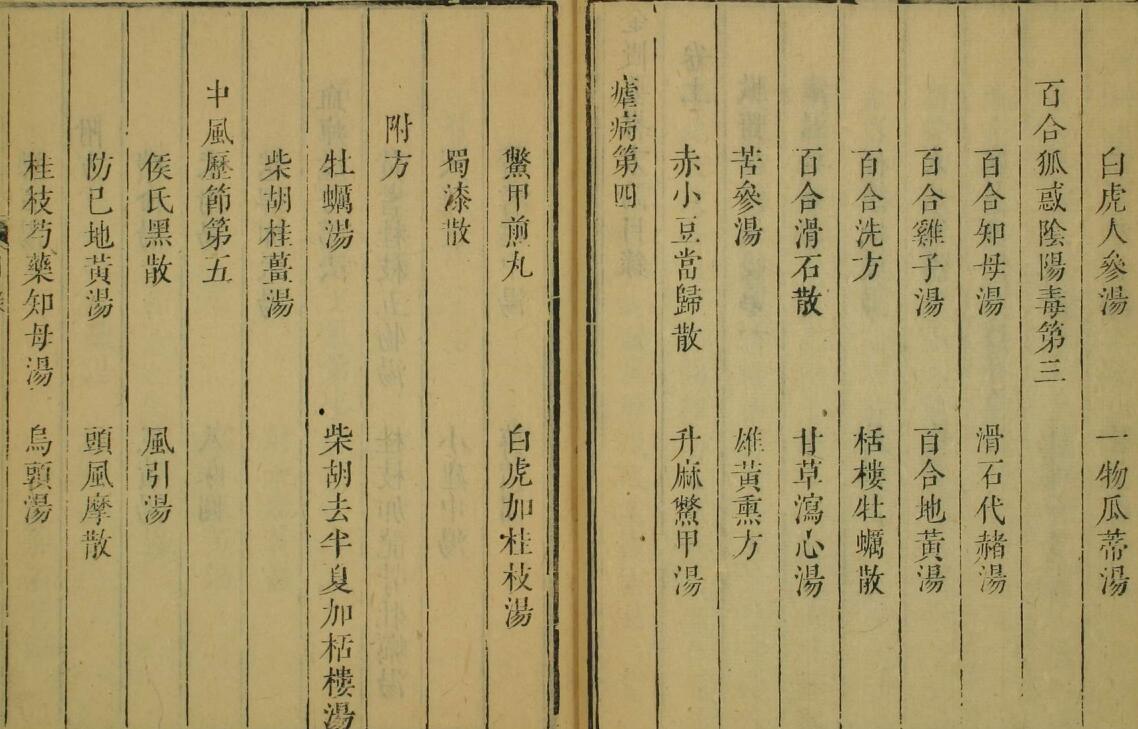 白虎人參湯 一物瓜蒂湯
百合狐惑陰陽毒第三
百合知母湯 滑石代赭湯
百合雞子湯 百合地黃湯
百合洗方 栝樓牡蠣散
百合滑石散 甘草瀉心湯
苦參湯 雄黃熏方
赤小豆當歸散 升麻鱉甲湯
瘧病第四
鱉甲煎丸 白虎加桂枝湯
蜀漆散
附方
牡蠣湯 柴胡去半夏加栝樓湯
柴胡桂薑湯
中風歷節第五
侯氏黑散 風引湯
防已地黃湯 頭風摩散
桂枝芍藥知母湯 烏頭湯